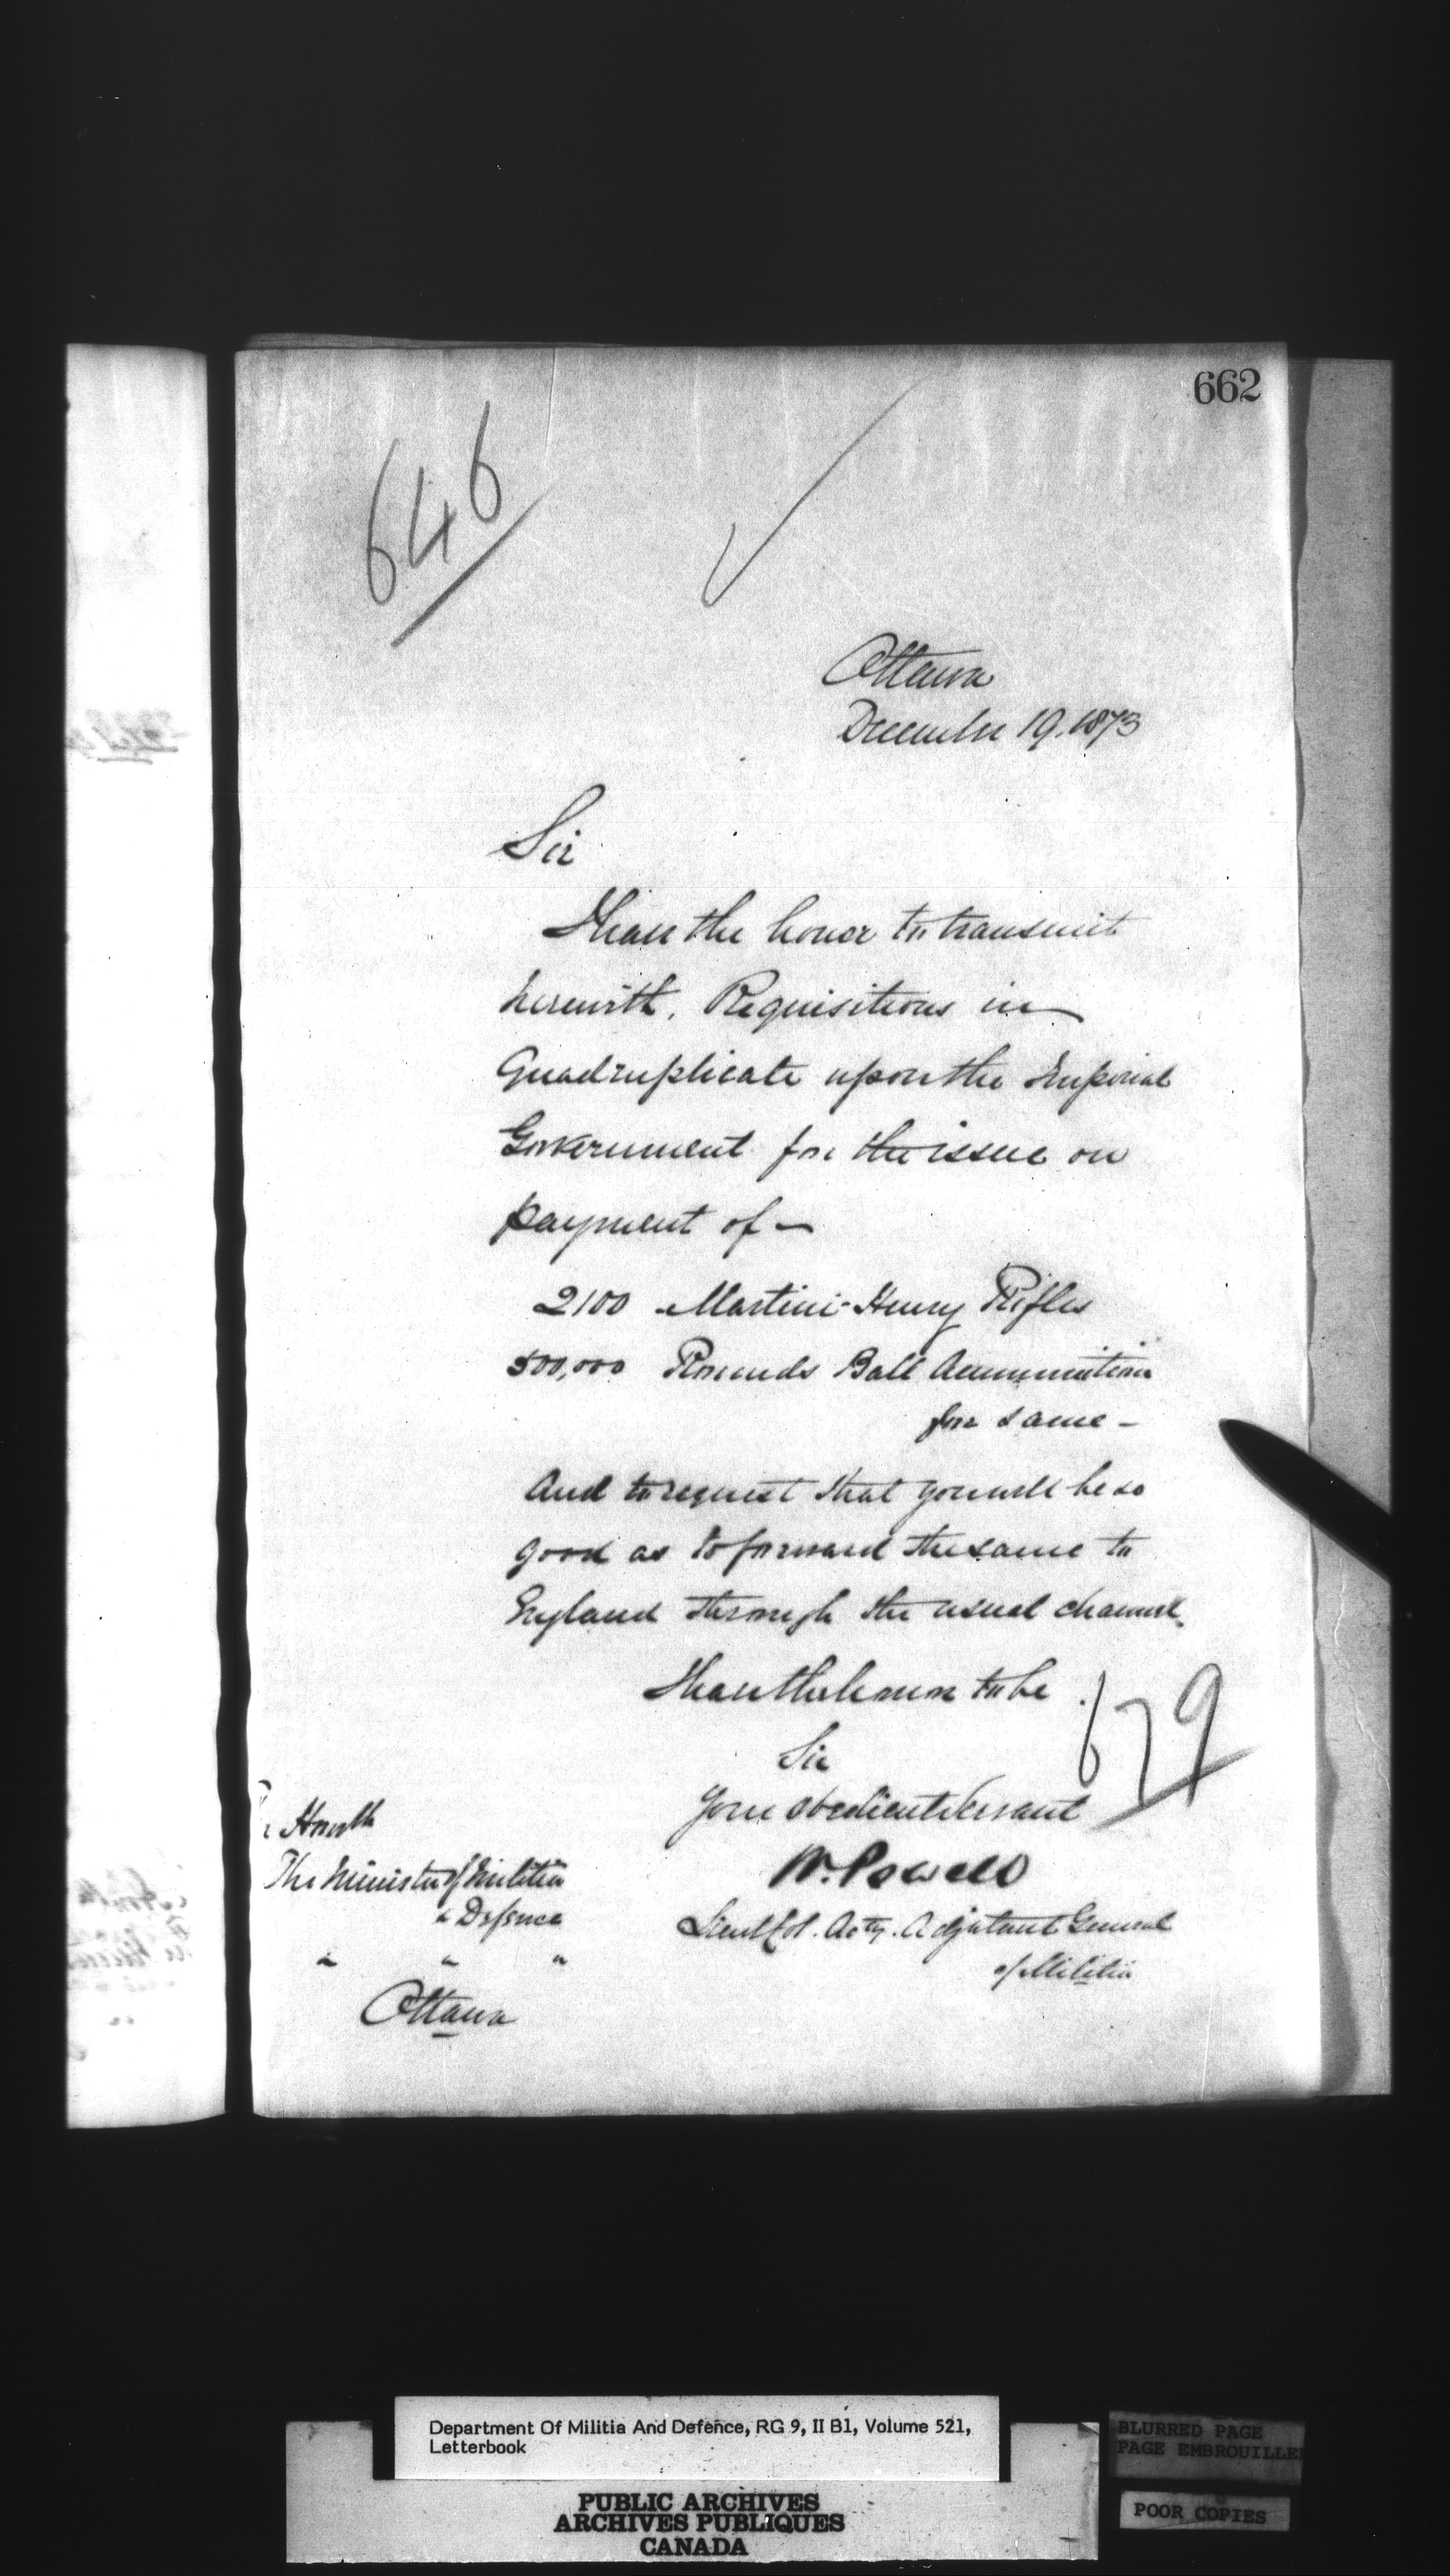 662
646
Ottawa
December 19. 1873
Sir
I have the honor to transmit
herewith, Requisitions in
Quadruplicate upon the Imperial
Government for the issue on
payment of -
2100 Martini-Henry Rifles
500,000 Rounds Ball Ammunition
for same -
And to request that you will be so
good as to forward the same to
England through the usual channel.
I have the honor to be
679
Sir
Your obedient Servant
W. Powell
Lieut Col. Actg. Adjutant General
of Militia
The Minister of Militia
& Defence
" " "
Ottawa
Department Of Militia And Defence, RG 9, II B1, Volume 521,
Letterbook
PUBLIC ARCHIVES
ARCHIVES PUBLIQUES
CANADA
BLURRED PAGE
PAGE EMBROUILLEE
POOR COPIES